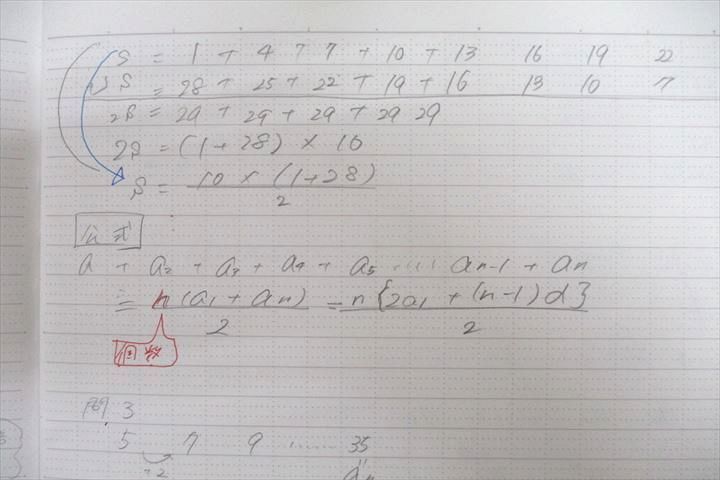 S = 1 + 4 + 7 + 10 + 13 16 19 22
+) S = 28 + 25 + 22 + 19 + 16 13 10 7
2S = 29 + 29 + 29 + 29 29
2S = (1+28) × 10
S = 10 × (1+28) / 2
公式
a + a2 + a3 + a4 + a5 ..... an-1 + an
= n(a1 + an) / 2 = n{2a1 + (n-1)d} / 2
個数
例 3
5 7 9 ..... 35
+2 an